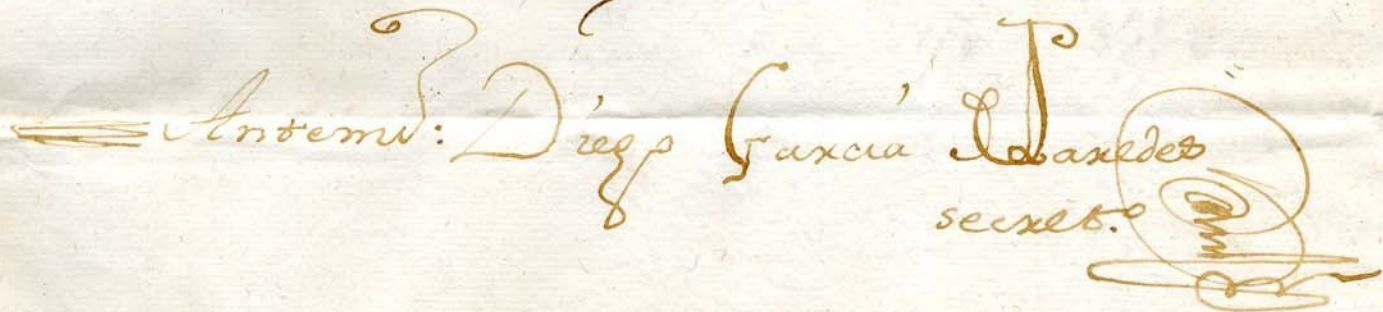 Antemi: Diego García Paredes
secret.º